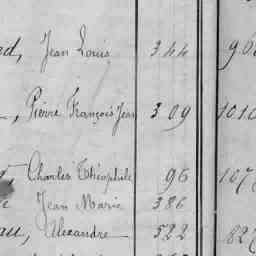 Jean Louis 344
Pierre François Jean 309 1010
Charles Théophile 96 107
Jean Marie 386
Alexandre 522 82